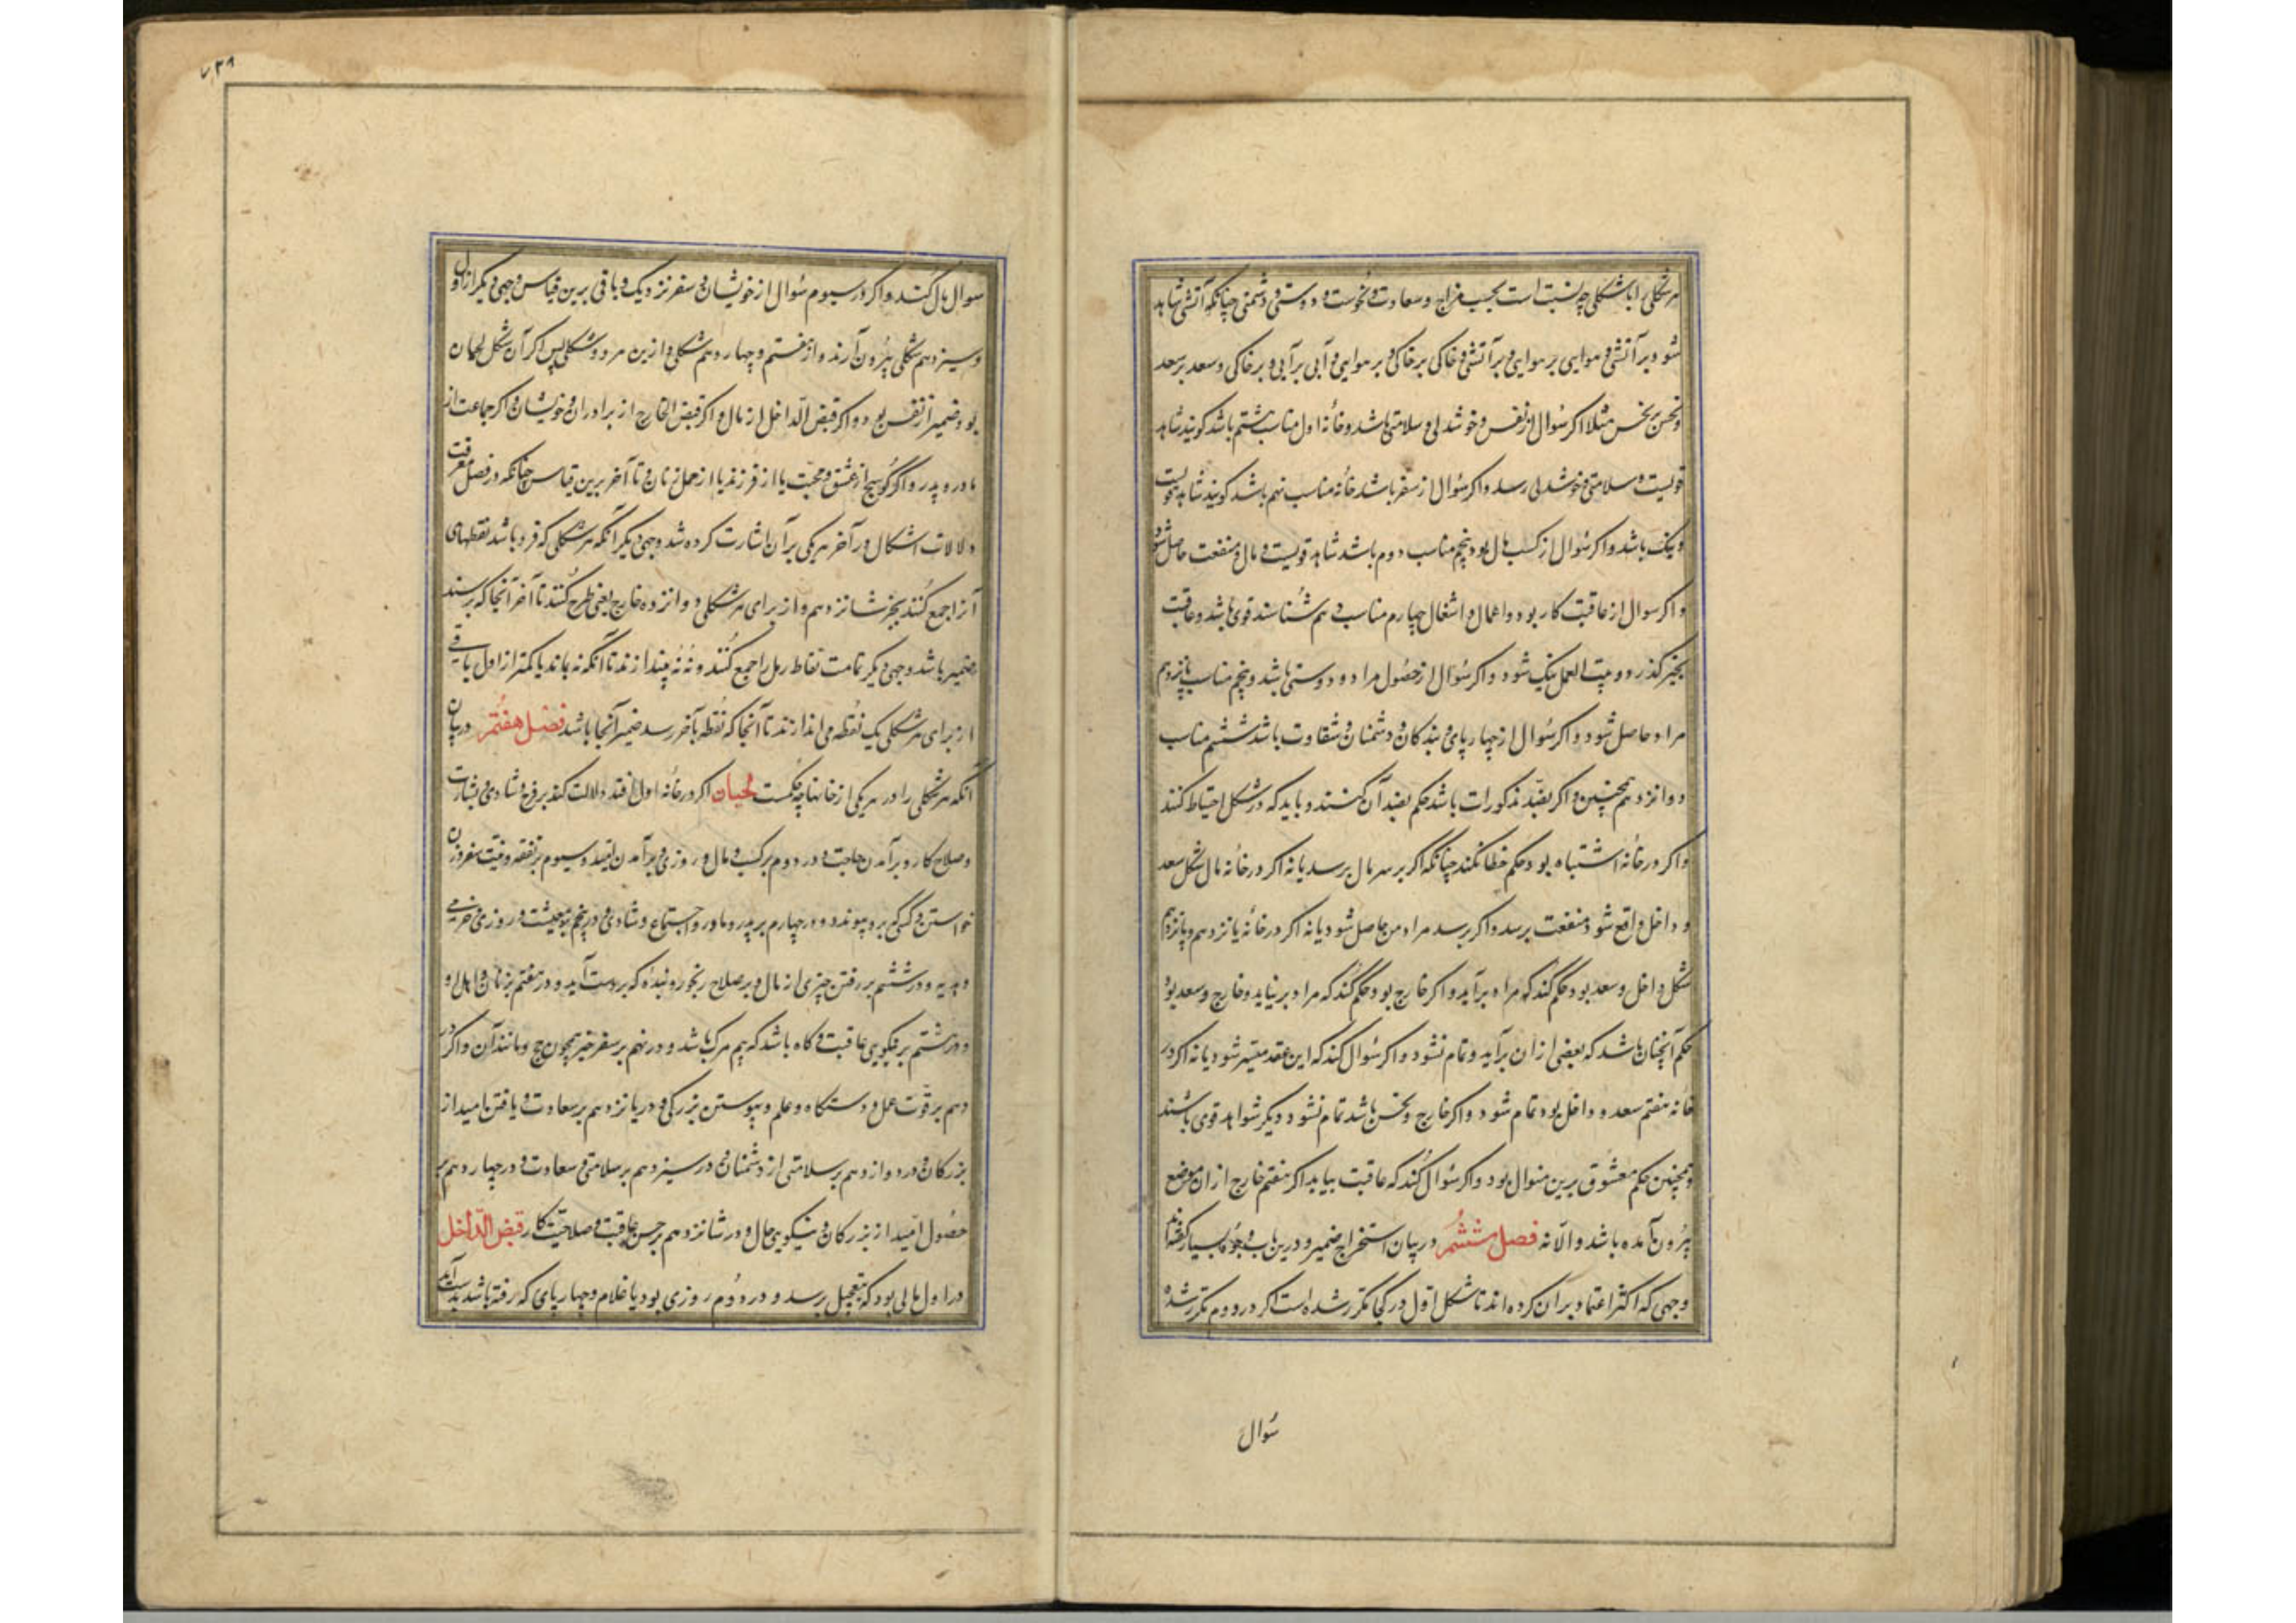 هر شکلی را با شکلی چه نسبت است بحسب مزاج و سعادت و نحوست و دوستی و دشمنی چنانکه آتشی شاهد
شود بر آتشی و هوایی بر هوایی و بر آتشی و خاکی بر خاکی و بر هوایی و آبی بر آبی و بر خاکی و سعد بر سعد
و نحس بر نحس مثلا اگر سؤال از نفس و خوشدلی و سلامتی باشد و خانه اول مناسب هشتم باشد گویند شاهد
قویست و سلامتی و خوشدلی رسد و اگر سؤال از سفر باشد خانه مناسب نهم باشد گویند شاهد قویست
و نیک باشد و اگر سؤال از کسب مال بود پنجم مناسب دوم باشد شاهد قویست و مال و منفعت حاصل شود
و اگر سوال از عاقبت کار بود و اعمال و اشغال چهارم مناسب دهم شناسند قوی باشد و عاقبت
بخیر گذرد و میت العمل نیک شود و اگر سؤال از حصول مراد و دوستی باشد و پنجم مناسب یازدهم
مراد حاصل شود و اگر سؤال از چهارپای و بندگان و دشمنان و شقاوت باشد ششم مناسب
دوازدهم همچنین و اگر بضد مذکورات باشد حکم بضد آن کنند و باید که در شکل احتیاط کنند
و اگر در خانه اشتباه بود حکم خطا نکند چنانکه اگر بر سر مال برسد یا نه اگر در خانه مال شکل سعد
و داخل واقع شود منفعت برسد و اگر برسد مراد من حاصل شود یا نه اگر در خانه یازدهم و پانزدهم
شکل داخل و سعد بود حکم کند که مراد برآید و اگر خارج بود حکم کند که مراد بر نیاید و خارج و سعد بود
حکم آنچنان باشد که بعضی از آن برآید و تمام نشود و اگر سؤال کند که این عقد میسر شود یا نه اگر در
خانه هفتم سعد و داخل بود تمام شود و اگر خارج و نحس باشد تمام نشود و دیگر شواهد قوی باشند
و همچنین حکم معشوق برین منوال بود و اگر سؤال کند که عاقبت بیاید اگر هفتم خارج از ان موضع
بیرون آمده باشد و الا نه فصل ششم در بیان استخراج ضمیر و درین باب وجوه بسیار گفته‌اند
وجهی که اکثر اعتماد بر آن کرده‌اند تا شکل اول در کجا تکرر شده است اگر در دوم تکرر شده
سؤال
۷۳۹
سوال مال کنند و اگر در سیوم سؤال از خویشان و سفر نزدیک و باقی برین قیاس وجهی دیگر از اول
و سیزدهم شکلی بیرون آرند و از هفتم و چهاردهم شکلی و ازین هر دو شکلی پس اگر آن شکل لحیان
بود ضمیر از نفس بود و اگر قبض الداخل از مال و اگر قبض الخارج از برادران و خویشان و اگر جماعت از
مادر و پدر و اگر کوسج از عشق و محبت یا از فرزند یا از حمل زنان و تا آخر برین قیاس چنانکه در فصل معرفت
دلالات اشکال در آخر هر یکی بر آن اشارت کرده شد وجهی دیگر آنکه هر شکلی که فرد باشد نقطهای
آنرا جمع کنند بجز شانزدهم و از برای هر شکلی دوازده خارج یعنی طرح کنند تا آخر آنجا که برسند
ضمیر باشد وجهی دیگر تمامت نقاط رمل را جمع کنند و نه نه بیندازند تا آنکه نه بماند یا کمتر از اول باقی
از برای هر شکلی یک نقطه می‌اندازند تا آنجا که نقطه بآخر رسد ضمیر آنجا باشد فصل هفتم در بیان
آنکه هر شکلی را در هر یکی از خانها چه حکمست لحیان اگر در خانه اول افتد دلالت کند بر فرح و شادی و بشارت
و صلاح کار و برآمدن حاجت و در دوم بر کسب مال و روزی و برآمدن امید و سیوم بر نفقه و نیت سفر و زن
خواستن و کسی که بدو پیوندد و در چهارم بر پدر و مادر و اجتماع و شادی و در پنجم بر معیشت و روزی و خرمی
و هدیه و در ششم بر رفتن چیزی از مال و بر صلاح رنجور و بنده که بدست آید و در هفتم بر زنان و اهل او
و در هشتم بر نیکویی عاقبت و گاه باشد که بیم مرگ باشد و در نهم بر سفر خیر همچون حج و مانند آن و اگر در
دهم بر قوت عمل و دستگاه و علم و پیوستن بزرگی و در یازدهم بر سعادت و یافتن امید از
بزرگان و در دوازدهم بر سلامتی از دشمنان و در سیزدهم بر سلامتی و سعادت و در چهاردهم بر
حصول امید از بزرگان و نیکویی حال و در شانزدهم بر حسن عاقبت و صلاحیت کار قبض الداخل
در اول مالی بود که بتعجیل برسد و در دوم روزی بود یا غلام و چهارپای که رفته باشد بدست آید